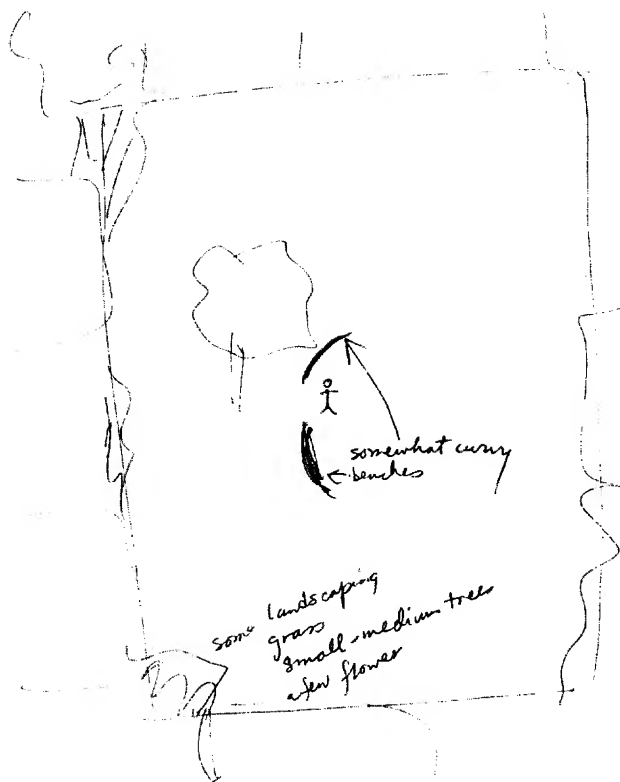 somewhat curvy
benches
some landscaping
grass
small-medium trees
a few flower